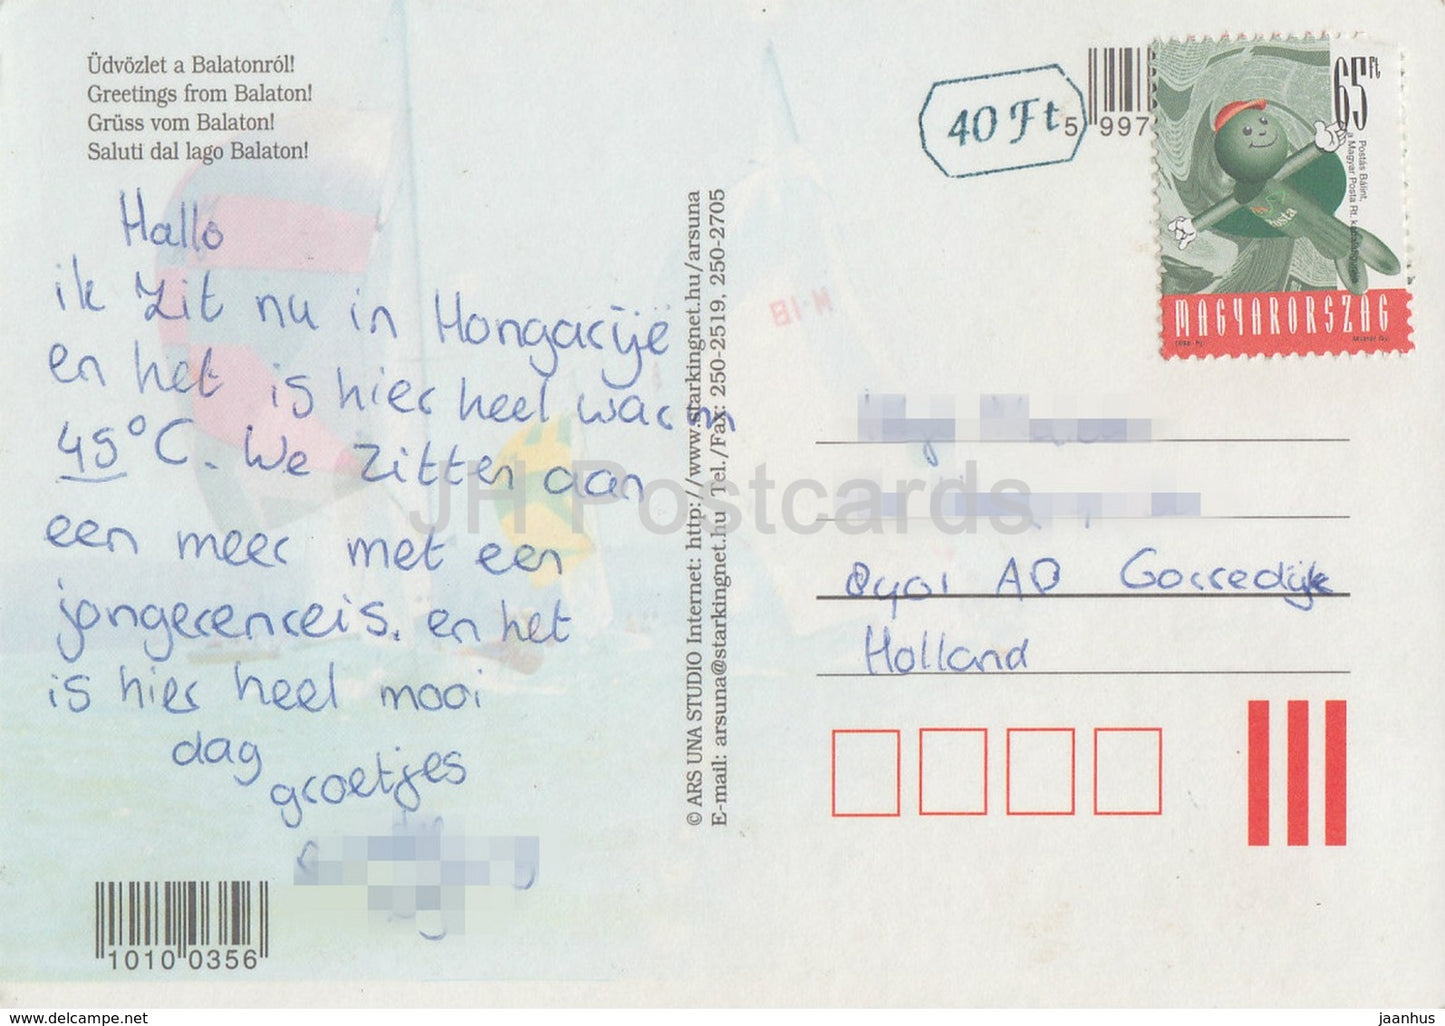 Üdvözlet a Balatonról!
Greetings from Balaton!
Grüss vom Balaton!
Saluti dal lago Balaton!
Hallo
ik zit nu in Hongarije
en het is hier heel warm
45°C. We zitten aan
een meer met een
jongerenreis. en het
is hier heel mooi
dag
groetjes
1010 0356
© ARS UNA STUDIO Internet: http://www.starkingnet.hu/arsuna
E-mail: arsuna@starkingnet.hu Tel./Fax: 250-2519, 250-2705
40 Ft
5 997
65 Ft
Postás Bálint,
a Magyar Posta Rt.
MAGYARORSZÁG
8401 AD Gorredijk
Holland
JH Postcards
www.delcampe.net
jaanhus